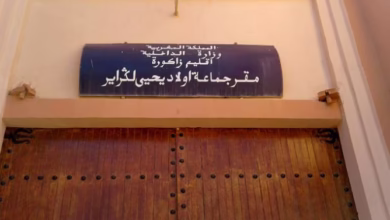 المملكة المغربية
وزارة الداخلية
اقليم زاكورة
مقر جماعة اولاد يحيى لكراير